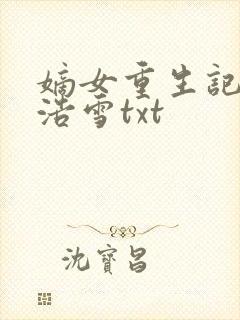 嫡女重生記
浩雪txt
沈寶昌